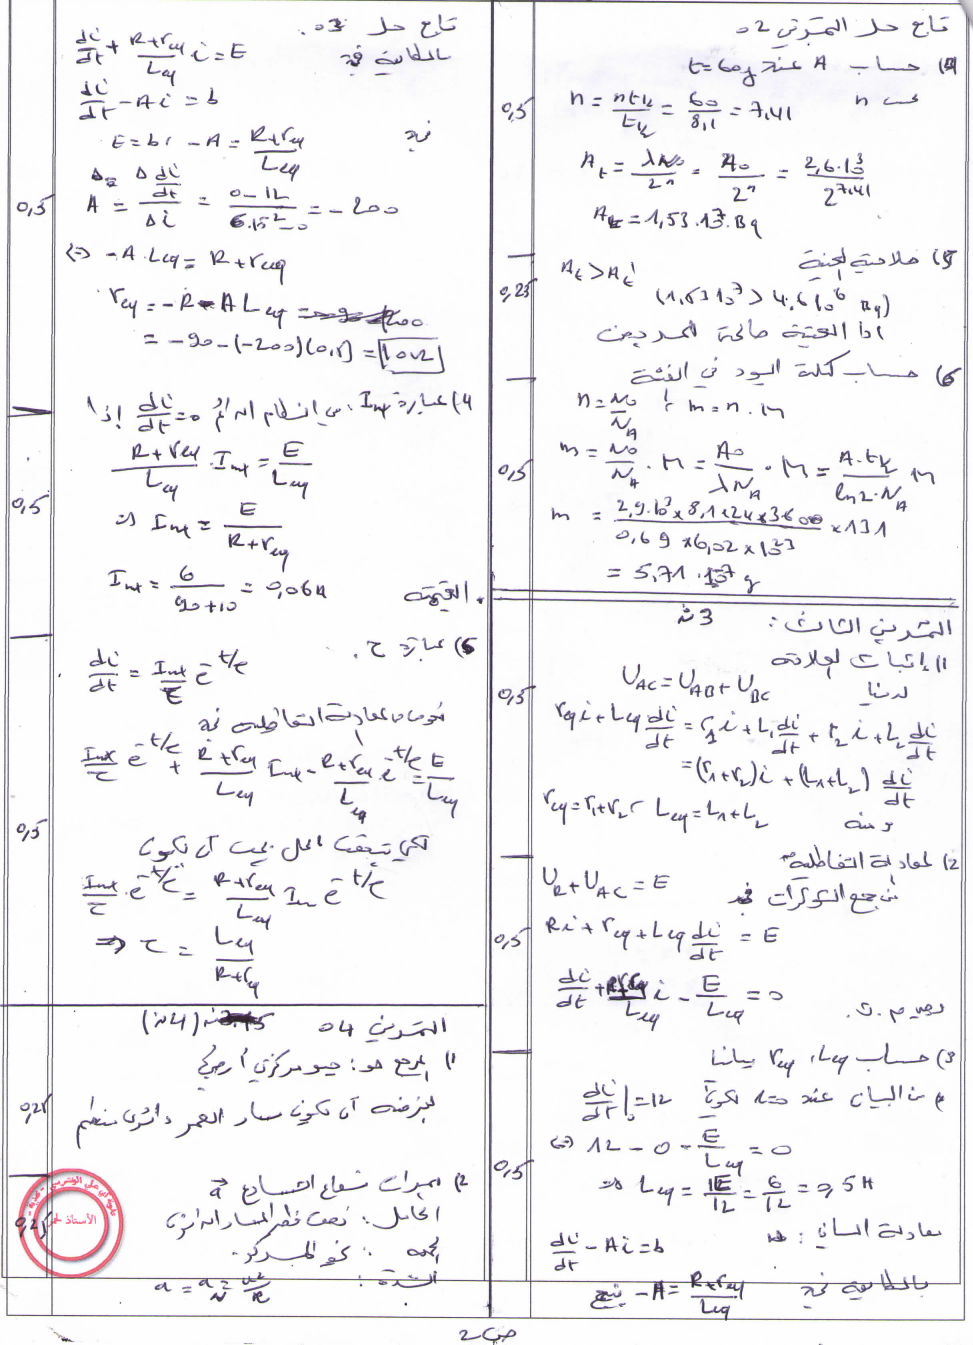 تابع حل التمرين 02
4) حساب A عند t=60j
n = nt½/t½ = 60/8,1 = 7,41
0,5
A_t = λN₀/2ⁿ = A₀/2ⁿ = 2,6.10⁹/2^7,41
A_t = 1,53.10⁷ Bq
5) صلاحية العينة
A_t > A_t'
0,25
(1,53.10⁷ > 4,6.10⁶ Bq)
اذا العينة صالحة
6) حساب كتلة اليود في العينة
n = N₀/N_A ؛ m = n.M
0,5
m = N₀/N_A . M = A₀/λN_A . M = A.t½/ln2.N_A M
m = 2,9.10⁹ x 8,1 x 24 x 3600/0,69 x 6,02 x 10²³ x 131
= 5,71 .10⁻⁷ g
التمرين الثالث : 3ن
1) إثبات العلاقة
لدينا U_AC = U_AB + U_BC
0,5
r_eq i + L_eq di/dt = r₁i + L₁ di/dt + r₂i + L₂ di/dt
= (r₁+r₂)i + (L₁+L₂) di/dt
ومنه r_eq = r₁+r₂ , L_eq = L₁+L₂
2) المعادلة التفاضلية
من جمع التوترات نجد
U_R + U_AC = E
0,5
Ri + r_eq + L_eq di/dt = E
di/dt + R+r_eq/L_eq i - E/L_eq = 0
3) حساب L_eq، r_eq بيانيا
من البيان عند t=0 يكون di/dt|₀ = 12
⇔ 12 - 0 - E/L_eq = 0
0,5
⇒ L_eq = E/12 = 6/12 = 0,5H
معادلة البيان :
di/dt - Ai = b
بالمطابقة نجد -A = R+r_eq/L_eq ينتج
تابع حل 03.
بالمطابقة نجد
di/dt + R+r_eq/L_eq i = E
di/dt - Ai = b
نجد E = b , -A = R+r_eq/L_eq
0,5
A = Δ di/dt/Δi = 0-12/6.10⁻²-0 = -200
⇔ -A.L_eq = R+r_eq
r_eq = -R - A L_eq
= -90 - (-200)(0,5) = 10Ω
4) عبارة I_max : في النظام الدائم di/dt = 0 إذا
R+r_eq/L_eq . I_max = E/L_eq
0,5
⇒ I_max = E/R+r_eq
القيمة I_max = 6/90+10 = 0,06A
5) عبارة τ.
di/dt = I_max/τ e^-t/τ
نعوض المعادلة التفاضلية نجد
I_max/τ e^-t/τ + R+r_eq/L_eq I_max - R+r_eq/L_eq e^-t/τ = E/L_eq
0,5
لكي يتحقق الحل يجب أن يكون
I_max/τ . e^-t/τ = R+r_eq/L_eq I_m e^-t/τ
⇒ τ = L_eq/R+r_eq
التمرين 04 (4ن)
1) المرجع هو : جيو مركزي أرضي
0,25
الفرضية أن يكون مسار القمر دائري منتظم
2) مميزات شعاع التسارع a
0,25
الحامل : نصف قطر المسار الدائري
الجهة : نحو المركز.
الشدة : a = a_N = v²/R
الأستاذ
ص 2